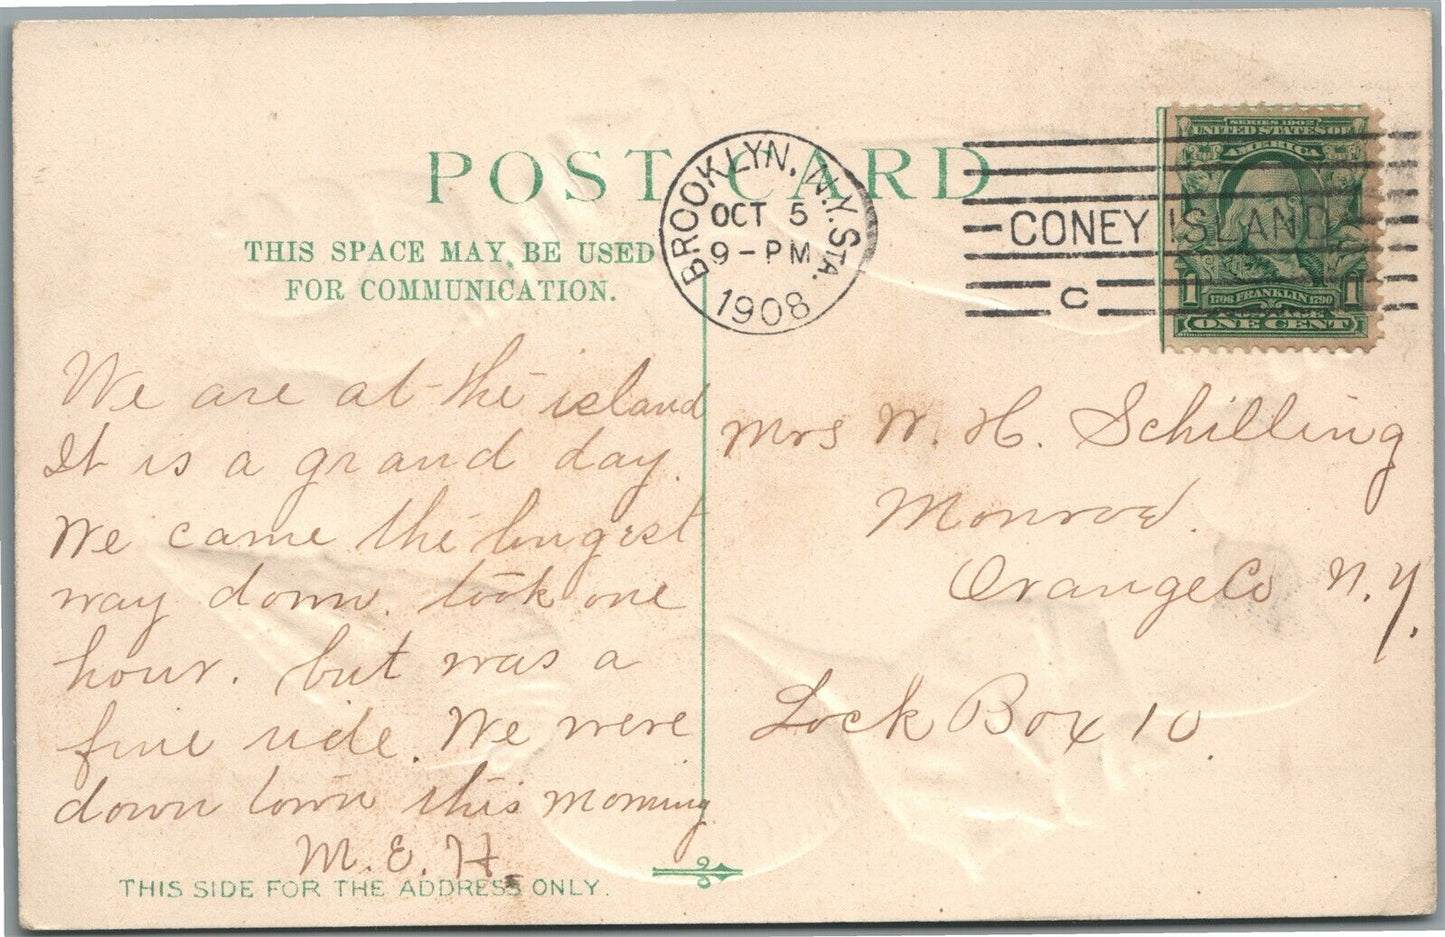 POST CARD
THIS SPACE MAY BE USED
FOR COMMUNICATION.
BROOKLYN, N.Y. STA.
OCT 5
9-PM
1908
CONEY ISLAND
C
SERIES 1902
UNITED STATES OF
AMERICA
1706 FRANKLIN 1790
POSTAGE
1 1
ONE CENT
We are at the island
It is a grand day.
We came the longest
way down. took one
hour. but was a
fine ride. We were
down town this morning
M. E. H.
Mrs W. H. Schilling
Monroe.
Orange Co N. Y.
Lock Box 10.
THIS SIDE FOR THE ADDRESS ONLY.